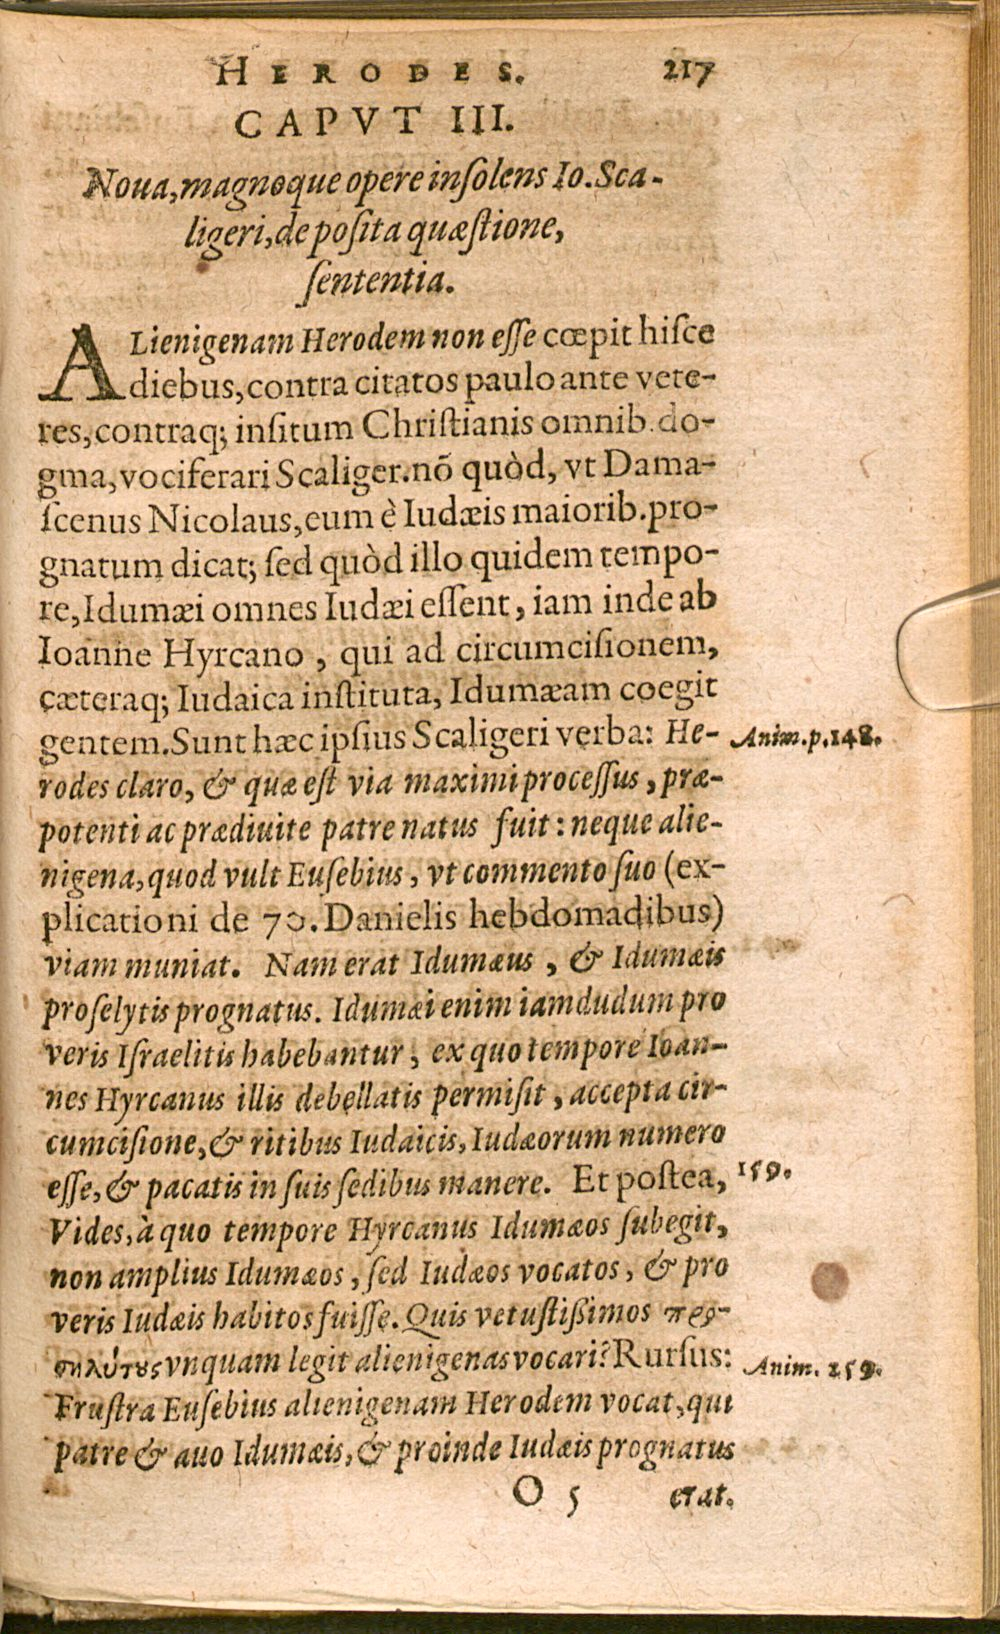 HERODES. 217
CAPVT III.
Noua, magnoque opere insolens Io. Sca-
ligeri, de posita quæstione,
sententia.
ALienigenam Herodem non esse cœpit hisce
diebus, contra citatos paulo ante vete-
res, contraq; insitum Christianis omnib. do-
gma, vociferari Scaliger. nõ quòd, vt Dama-
scenus Nicolaus, eum è Iudæis maiorib. pro-
gnatum dicat; sed quòd illo quidem tempo-
re, Idumæi omnes Iudæi essent, iam inde ab
Ioanne Hyrcano, qui ad circumcisionem,
cæteraq; Iudaica instituta, Idumæam coegit
gentem. Sunt hæc ipsius Scaligeri verba: He- Anim. p. 148.
rodes claro, & quæ est via maximi processus, præ-
potenti ac prædiuite patre natus fuit: neque alie-
nigena, quod vult Eusebius, vt commento suo (ex-
plicationi de 70. Danielis hebdomadibus)
viam muniat. Nam erat Idumæus, & Idumæis
proselytis prognatus. Idumæi enim iamdudum pro
veris Israelitis habebantur, ex quo tempore Ioan-
nes Hyrcanus illis debellatis permisit, accepta cir-
cumcisione, & ritibus Iudaicis, Iudæorum numero
esse, & pacatis in suis sedibus manere. Et postea, 159.
Vides, à quo tempore Hyrcanus Idumæos subegit,
non amplius Idumæos, sed Iudæos vocatos, & pro
veris Iudæis habitos fuisse. Quis vetustißimos προ-
σηλύτους vnquam legit alienigenas vocari? Rursus: Anim. 259.
Frustra Eusebius alienigenam Herodem vocat, qui
patre & auo Idumæis, & proinde Iudæis prognatus
O 5 erat.